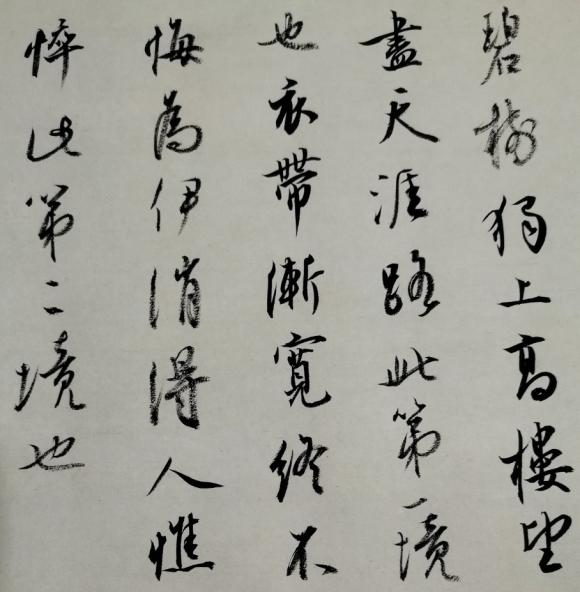 碧樹獨上高樓望
盡天涯路此第一境
也衣帶漸寬終不
悔為伊消得人憔
悴此第二境也